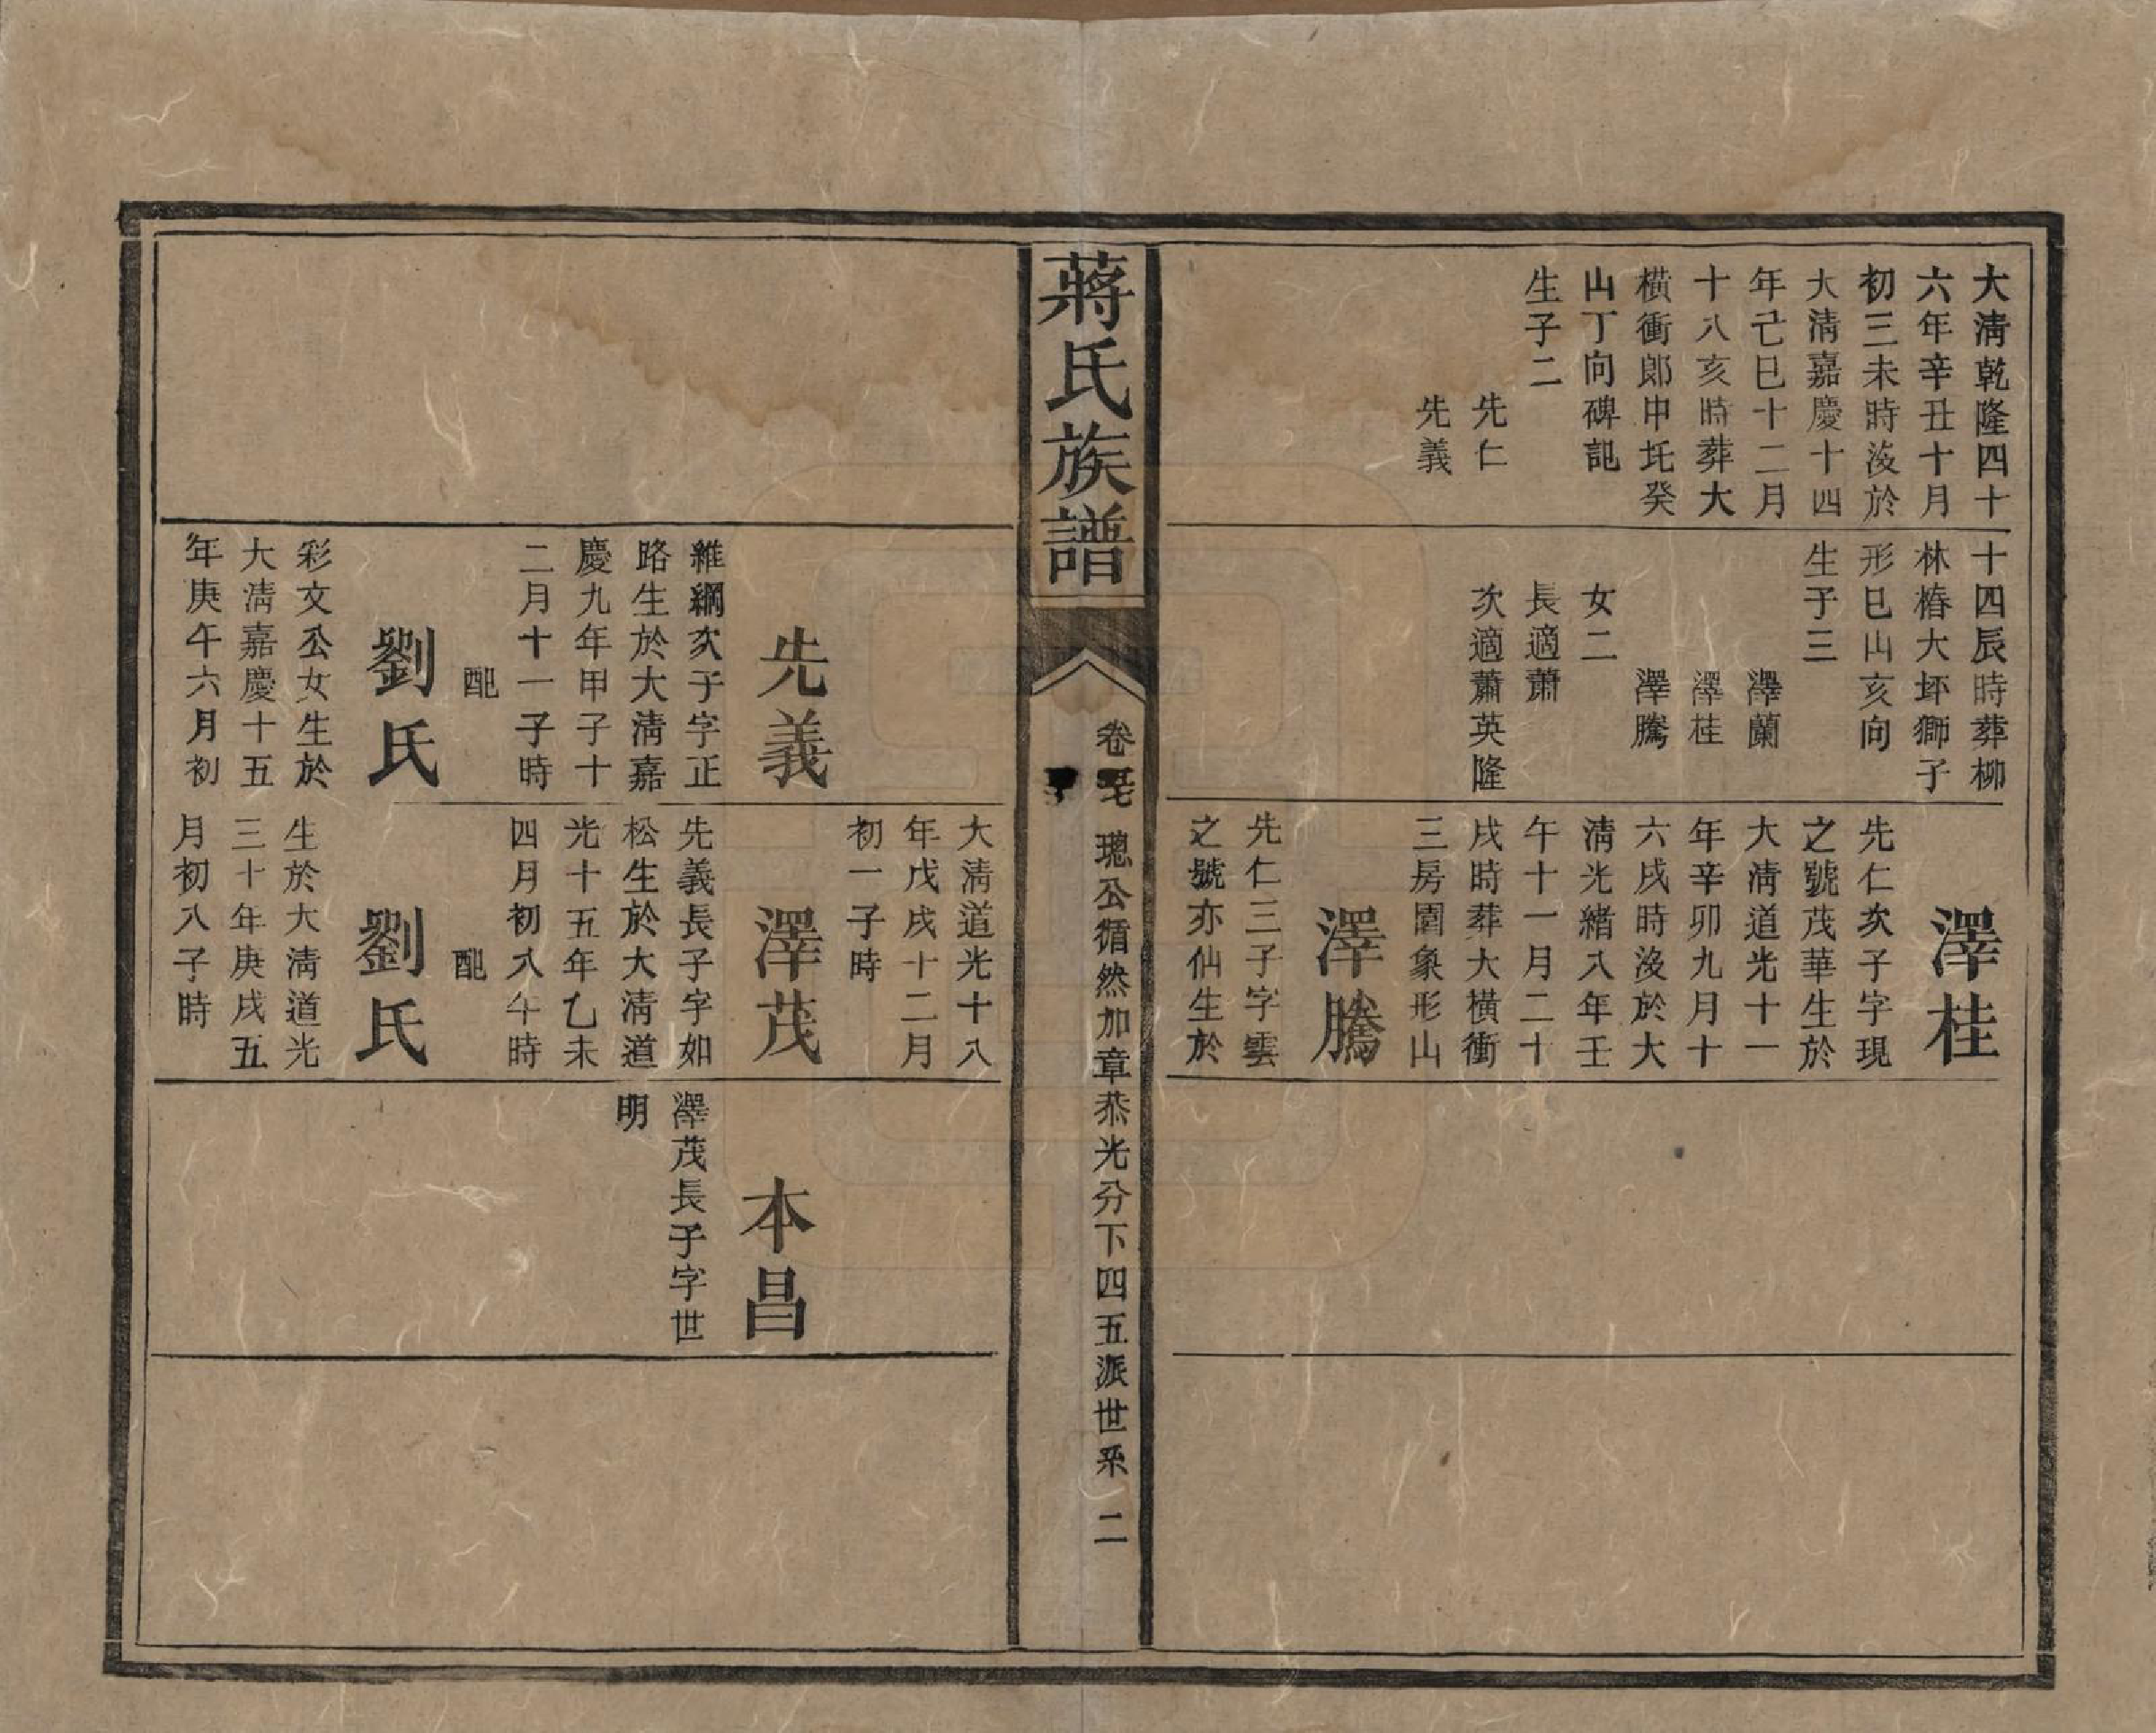 大清乾隆四十
六年辛丑十月
初三未時没於
大清嘉慶十四
年己巳十二月
十八亥時葬大
橫衝郎申圫癸
山丁向碑記
生子二
先仁
先義
十四辰時葬柳
林樁大坏獅子
形巳山亥向
生子三
澤蘭
澤桂
澤騰
女二
長適蕭
次適蕭英隆
澤桂
先仁次子字現
之號茂華生於
大清道光十一
年辛卯九月十
六戌時没於大
清光緒八年壬
午十一月二十
戌時葬大橫衝
三房園象形山
澤騰
先仁三子字雲
之號亦仙生於
蔣氏族譜
卷
璁公循然加章恭光分下四五派世系
二
先義
維綱次子字正
路生於大清嘉
慶九年甲子十
二月十一子時
配
劉氏
彩文公女生於
大清嘉慶十五
年庚午六月初
大清道光十八
年戊戌十二月
初一子時
澤茂
先義長子字如
松生於大清道
光十五年乙未
四月初八午時
配
劉氏
生於大清道光
三十年庚戌五
月初八子時
本昌
澤茂長子字世
明